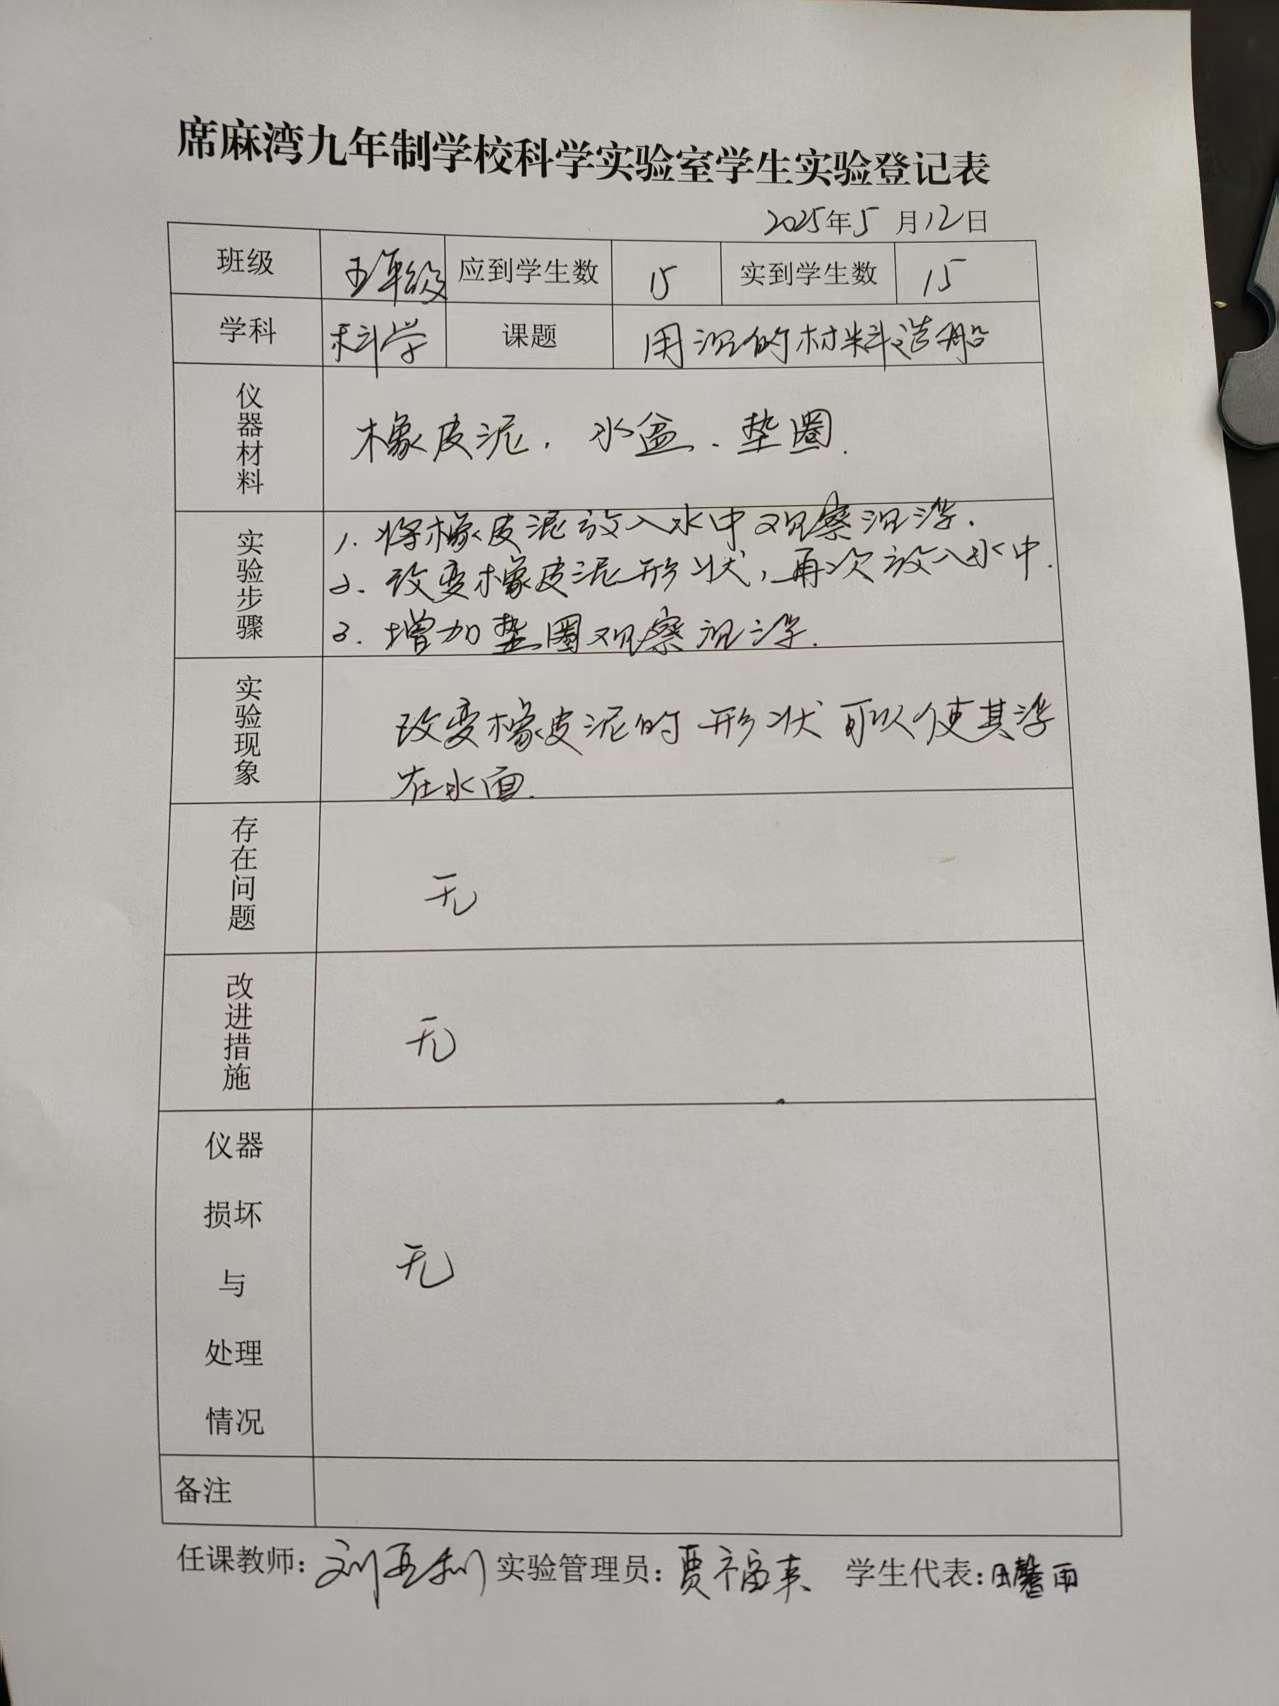 席麻湾九年制学校科学实验室学生实验登记表
2025年5月12日
班级 五年级 应到学生数 15 实到学生数 15
学科 科学 课题 用沉的材料造船
仪器材料 橡皮泥、水盆、垫圈.
实验步骤
1. 将橡皮泥放入水中观察沉浮.
2. 改变橡皮泥形状,再次放入水中.
3. 增加垫圈观察沉浮.
实验现象
改变橡皮泥的形状可以使其浮
在水面.
存在问题 无
改进措施 无
仪器
损坏
与
处理
情况
无
备注
任课教师: 刘亚利 实验管理员: 贾福来 学生代表: 馨雨